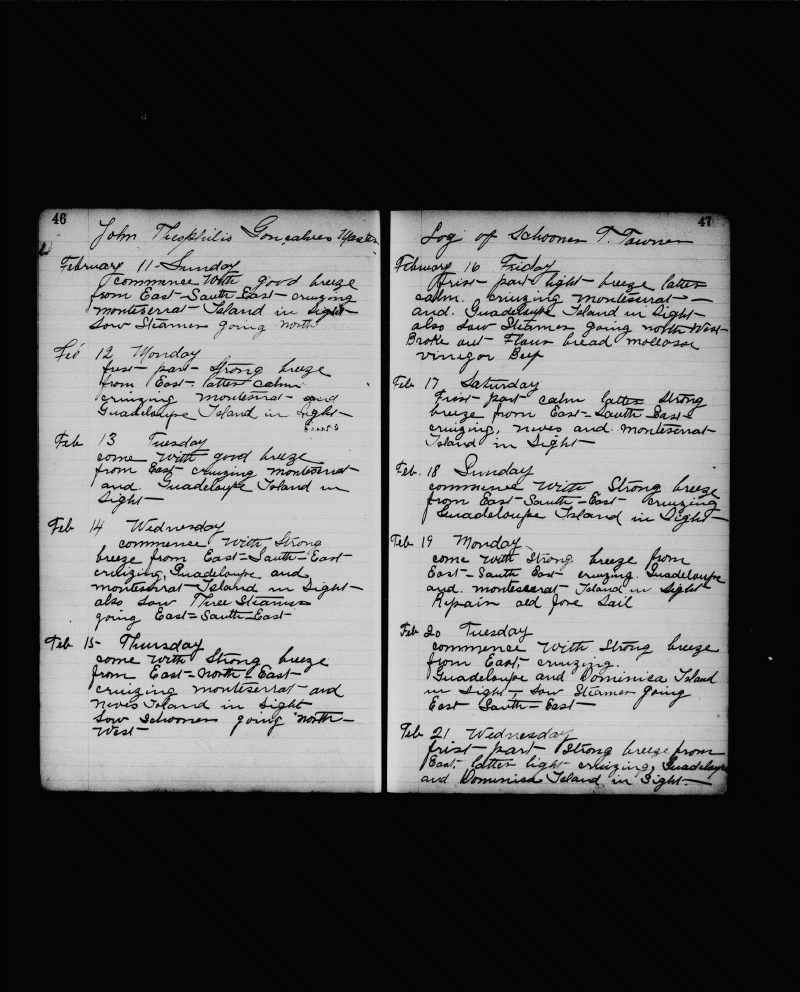 46
John Theophilis Goncalves Master
February 11 Sunday
commence With good breeze
from East-South East- cruizing
monteserrat Island in Sight-
Sow Steamer going north
Feb 12 Monday
first- part- Strong breeze
from East- latter calm
cruizing montesrrat- and
Guadeloupe Island in Sight-
Feb 13 Tuesday
come With good breeze
from East cruizing monteserrat
and. Guadeloupe Island in
Sight-
Feb 14 Wednesday
commence With Strong
breeze from East-South-East
cruizing, Guadeloupe and
montesrrat-Island in Sight-
also Sow Three Steamers
going East-South-East
Feb 15- Thursday
come With Strong breeze
from East-North-East
cruizing monteserrat and
nevis Island in Sight
Sow Schooner going north-
West-
47
Log of Schooner T. Towner
February 16 Friday
frist- part light- breeze latter
calm. cruizing monteserrat- -
and. Guadeloupe Island in Sight-
also Sow Steamer going north-West-
Broke out- Flour bread molcosse
vinigor Beef
Feb 17 Saturday
Frist- part calm latter Strong
breeze from East-South-East-
cruizing, nevis and. monteserrat-
Island in Sight-
Feb. 18 Sunday
commence With Strong breeze
from East-South-East- cruizing
Guadeloupe Island in Sight-
Feb 19 Monday
come With Strong breeze from
East-South East- cruizing. Guadeloupe
and. monteserrat Island in Sight-
Repair old fore Sail
Feb 20 Tuesday
commence With Strong breeze
from East, cruizing.
Guadeloupe and Dominica Island
in Sight-, Sow Steamer going
East South-East-
Feb 21 Wednesday
frist- part Strong breeze from
East, latter light cruizing, Guadeloupe
and Dominica Island in Sight.-